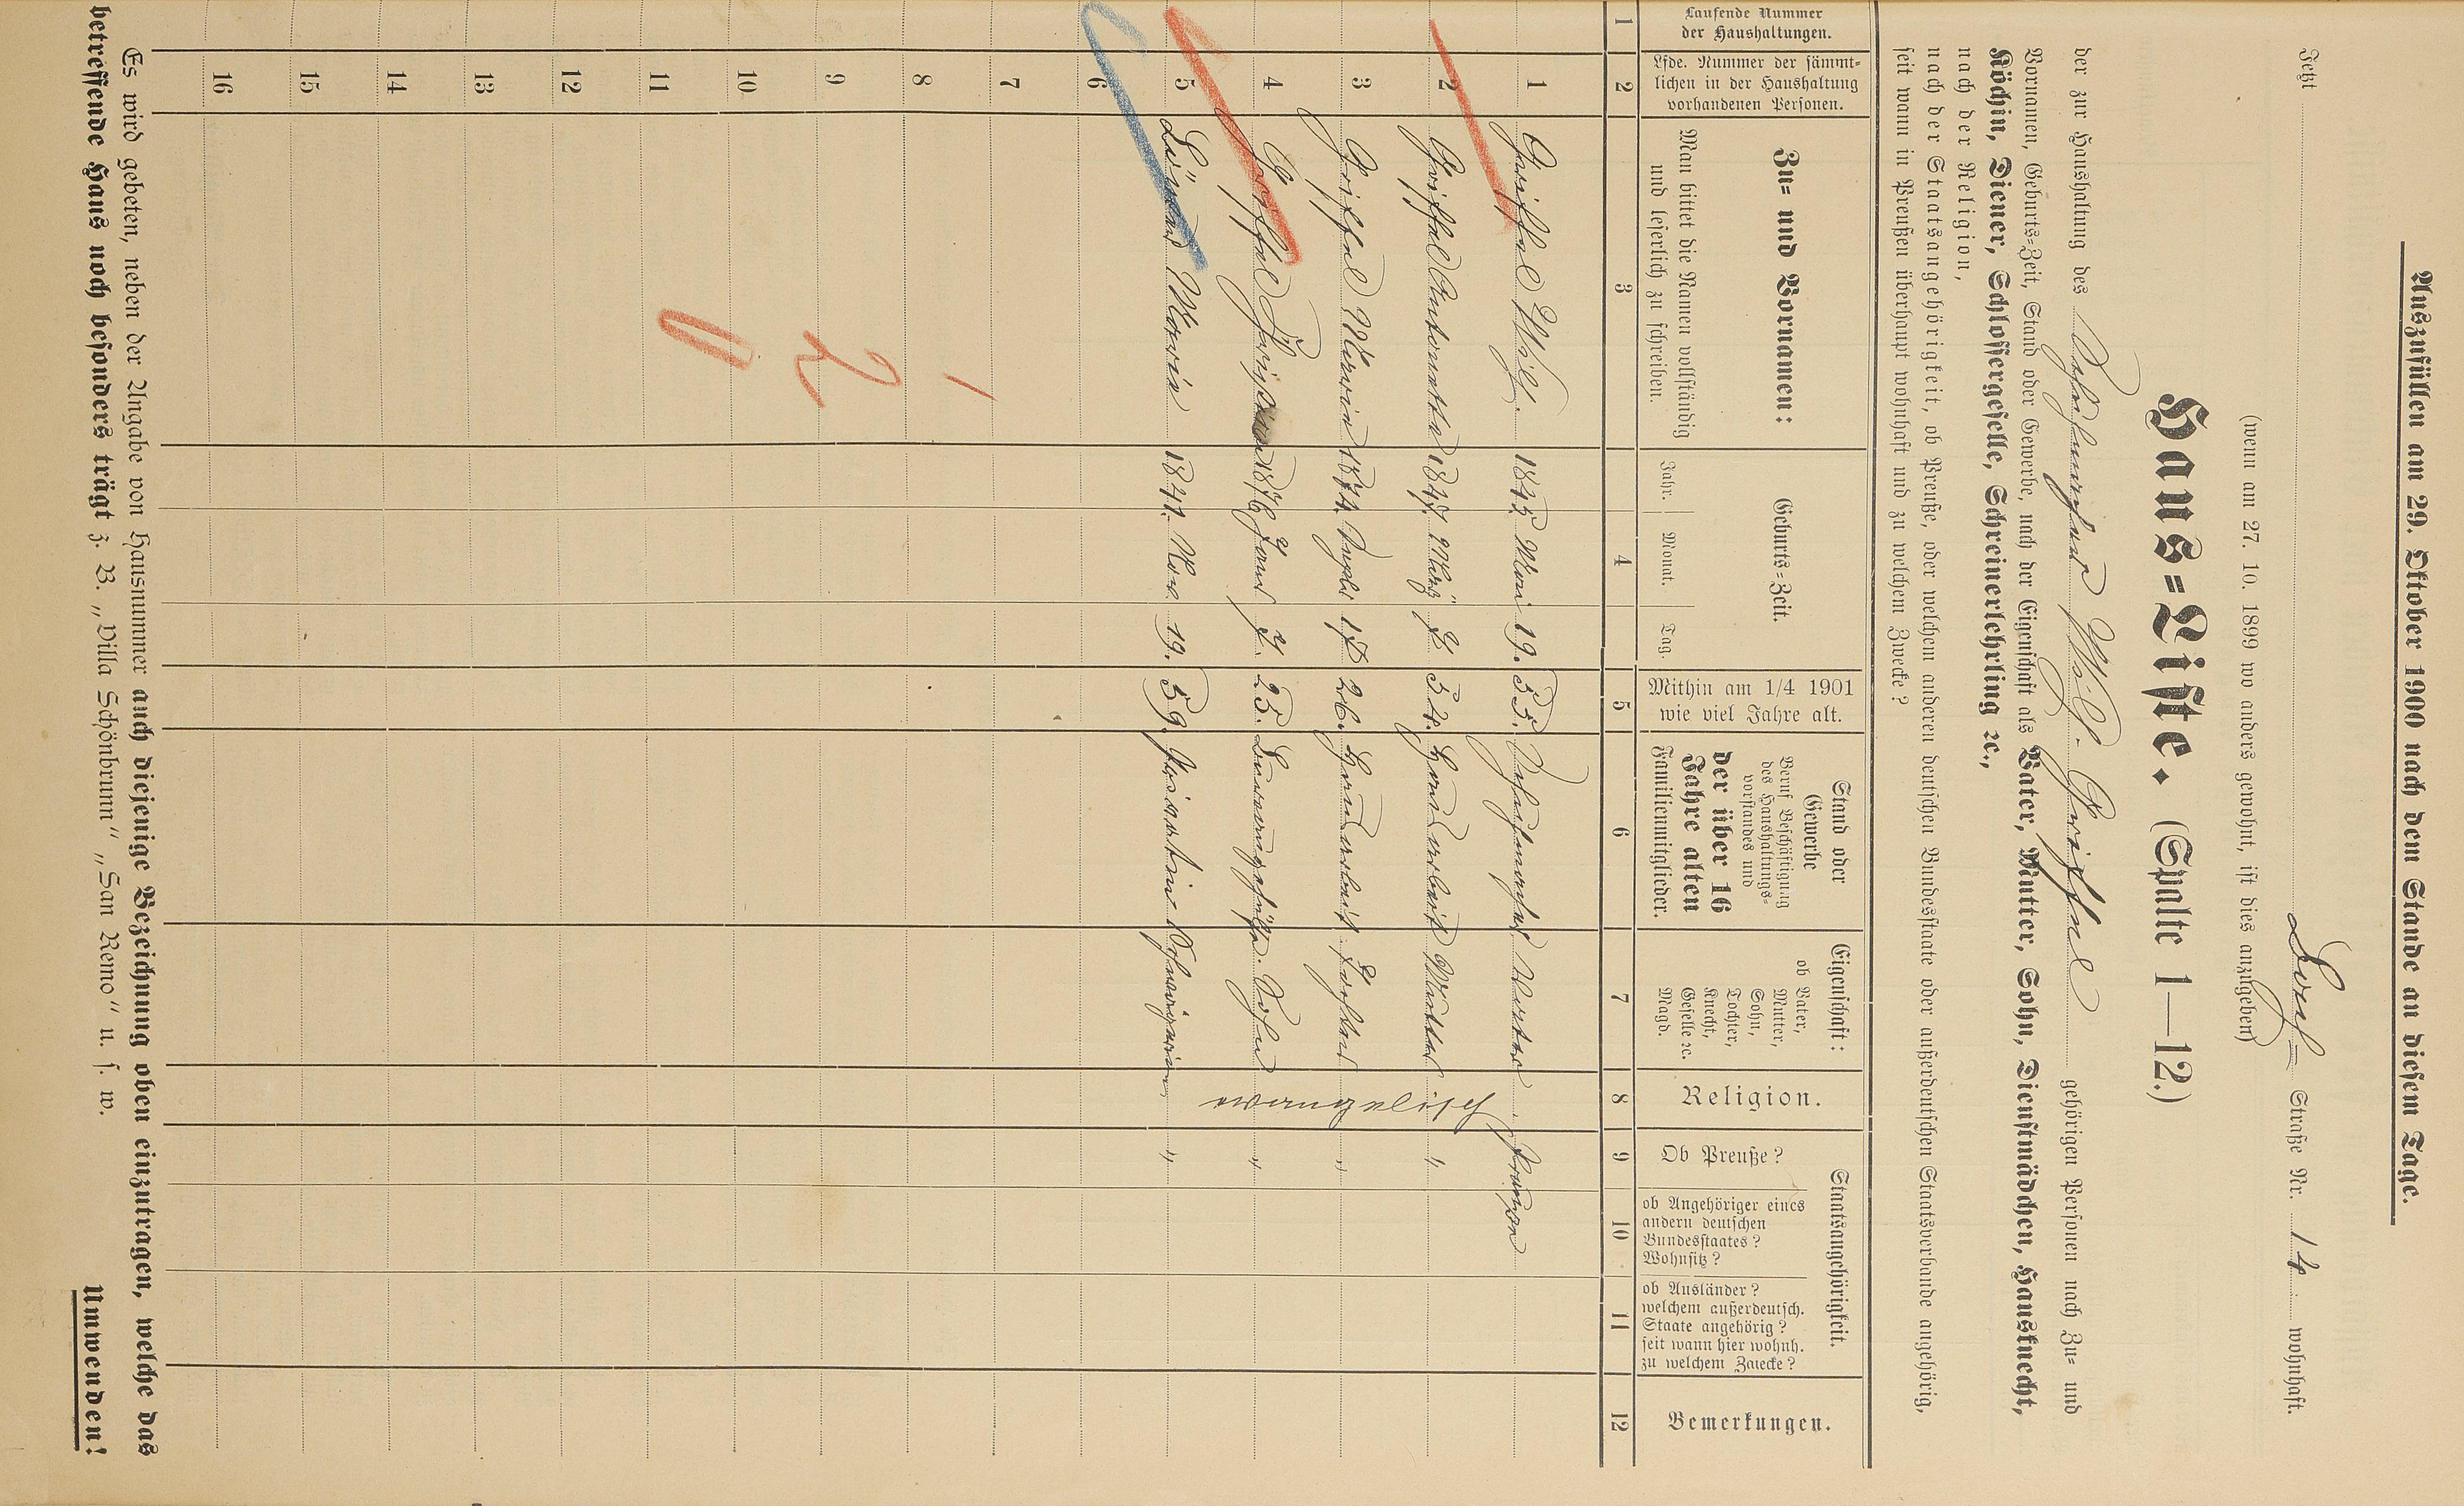 Auszufüllen am 29. Oktober 1900 nach dem Stande an diesem Tage.
Jetzt Straße Nr. 14 wohnhaft.
(wenn am 27. 10. 1899 wo anders gewohnt, ist dies anzugeben)
Haus=Liste. (Spalte 1—12.)
der zur Haushaltung des Wilh. gehörigen Personen nach Zu= und
Vornamen, Geburts=Zeit, Stand oder Gewerbe, nach der Eigenschaft als Vater, Mutter, Sohn, Dienstmädchen, Hausknecht,
Köchin, Diener, Schlossergeselle, Schreinerlehrling ꝛc.,
nach der Religion,
nach der Staatsangehörigkeit, ob Preuße, oder welchem anderen deutschen Bundesstaate oder außerdeutschen Staatsverbande angehörig,
seit wann in Preußen überhaupt wohnhaft und zu welchem Zwecke?
Laufende Nummer
der Haushaltungen.
Lfde. Nummer der sämmt=
lichen in der Haushaltung
vorhandenen Personen.
Zu= und Vornamen:
Man bittet die Namen vollständig
und leserlich zu schreiben.
Geburts=Zeit.
Jahr. Monat. Tag.
Mithin am 1/4 1901
wie viel Jahre alt.
Stand oder
Gewerbe
Beruf Beschäftigung
des Haushaltungs=
vorstandes und
der über 16
Jahre alten
Familienmitglieder.
Eigenschaft:
ob Vater,
Mutter,
Sohn,
Tochter,
Knecht,
Geselle ꝛc.
Magd.
Religion.
Staatsangehörigkeit.
Ob Preuße?
ob Angehöriger eines
andern deutschen
Bundesstaates?
Wohnsitz?
ob Ausländer?
welchem außerdeutsch.
Staate angehörig?
seit wann hier wohnh.
zu welchem Zwecke?
Bemerkungen.
1 2 3 4 5 6 7 8 9 10 11 12
1 Wilh. 1845. Mai 19. 55. Vater Preußen
2 1847. März 7 54. Hausarbeit Mutter "
3 1874. 17 26. Hausarbeit Tochter "
4 1876 25. Sohn "
5 Maria 1841. Nov. 19. 59. Schwägerin "
evangelisch
6
7
8
9
10
11
12
13
14
15
16
1
2
0
Es wird gebeten, neben der Angabe von Hausnummer auch diejenige Bezeichnung oben einzutragen, welche das
betreffende Haus noch besonders trägt z. B. „Villa Schönbrunn“ „San Remo“ u. s. w.
Umwenden!